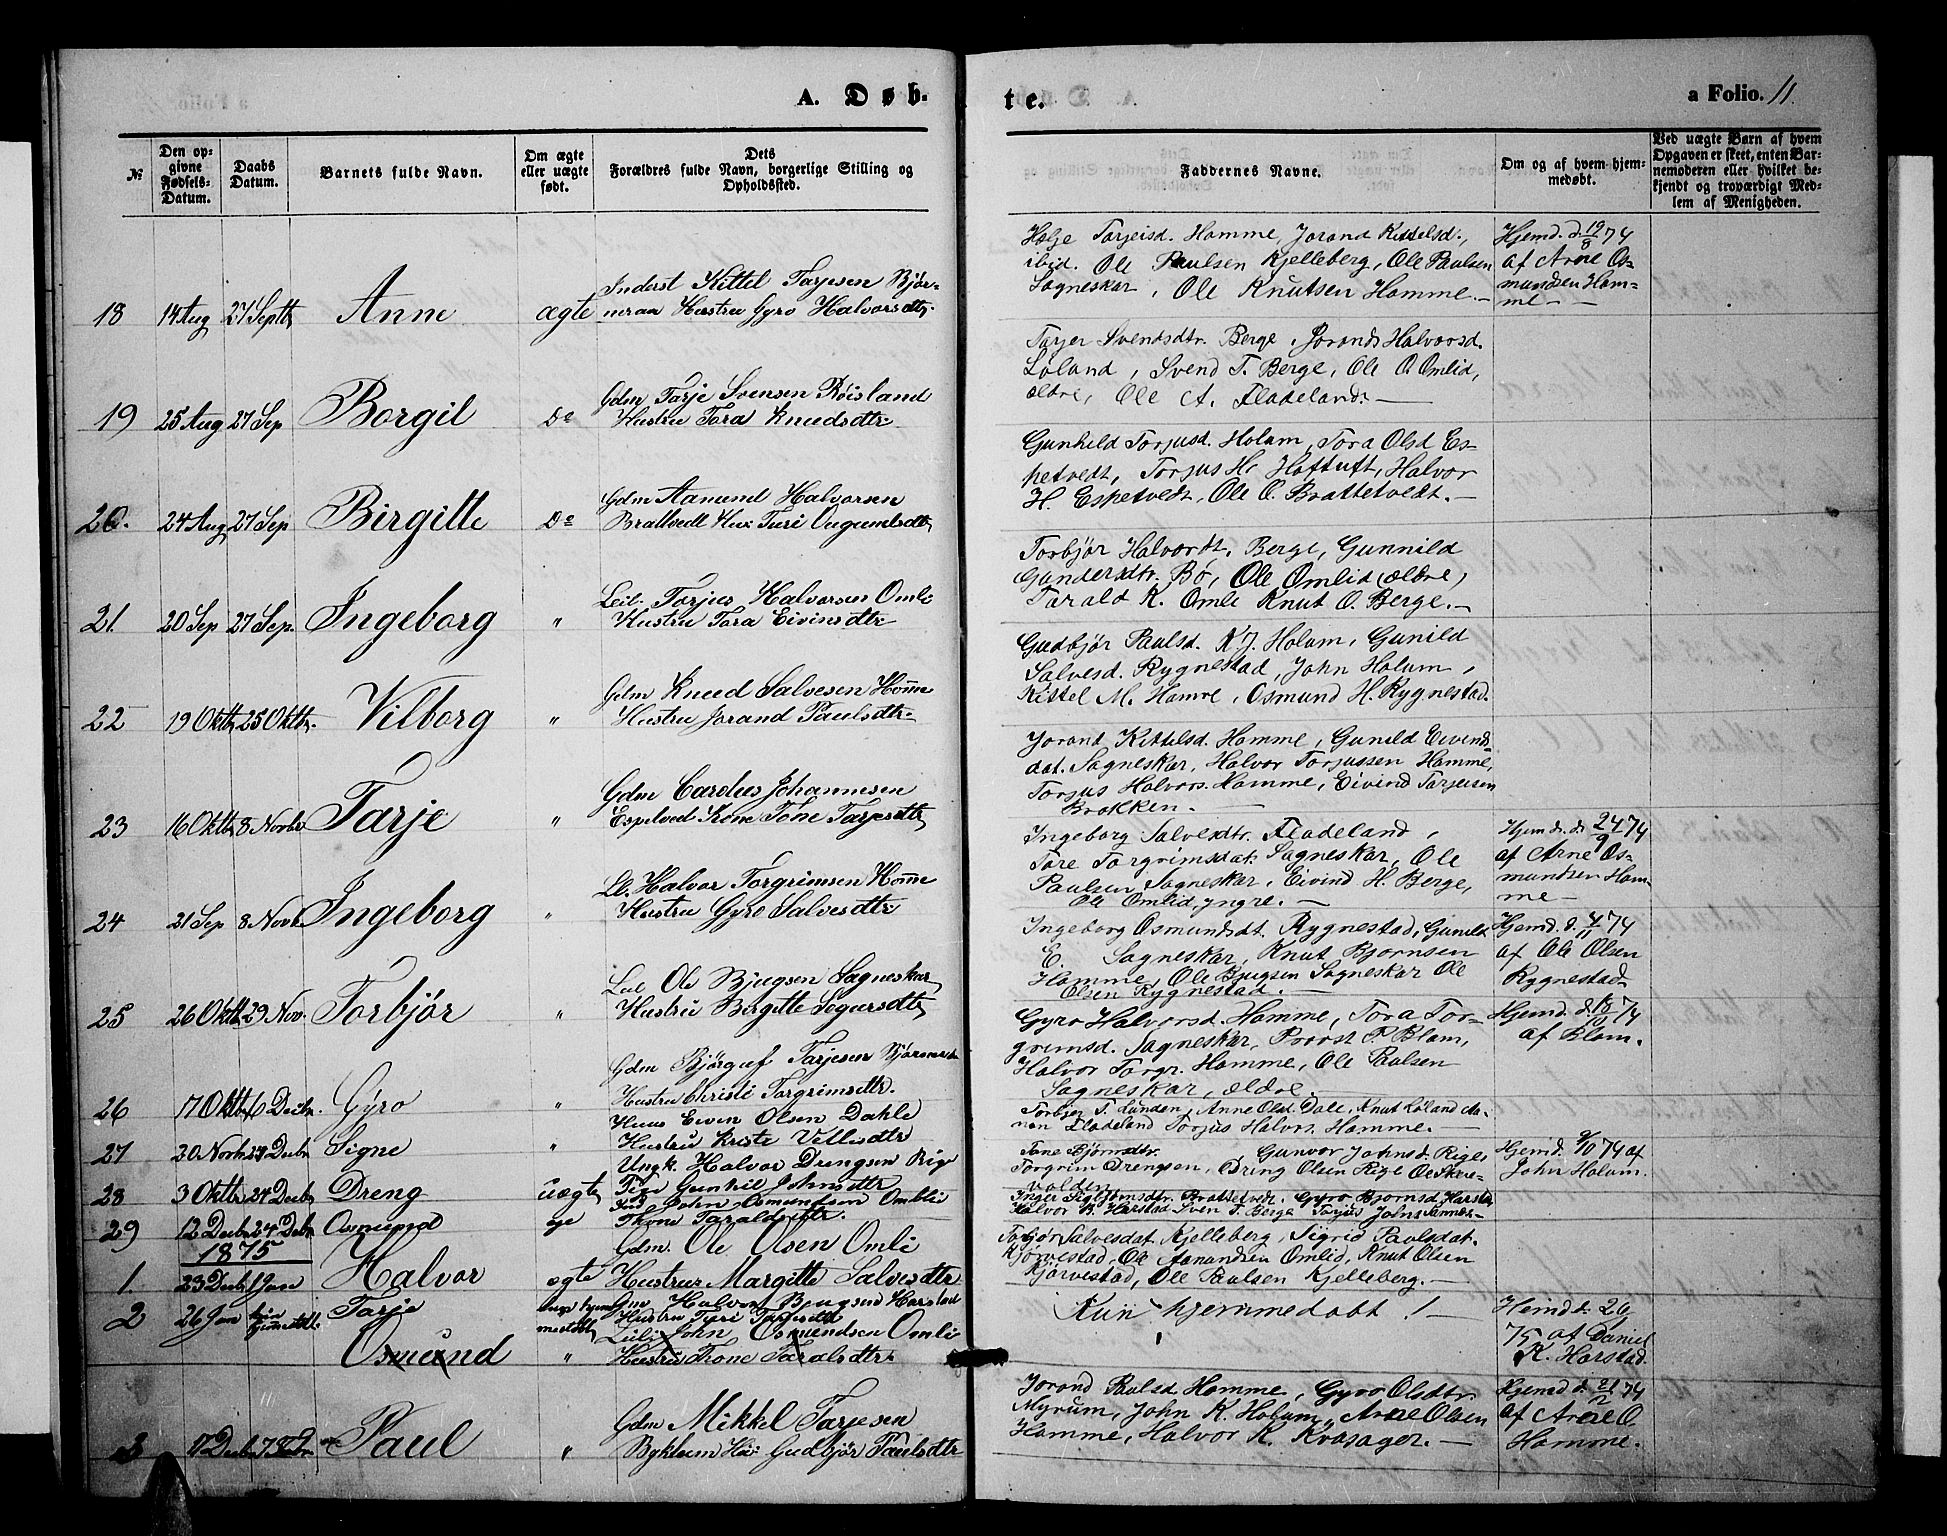 A. Døb-
te.
a Folio. 11.
№
Den op-
givne
Fødsels-
Datum.
Daabs
Datum.
Barnets fulde Navn.
Om ægte
eller uægte
født.
Dets
Forældres fulde Navn, borgerlige Stilling og
Opholdssted.
Faddernes Navne.
Om og af hvem hjem-
medøbt.
Ved uægte Børn af hvem
Opgaven er skeet, enten Bar-
nemoderen eller hvilket be-
kjendt og troværdigt Med-
lem af Menigheden.
18 14 Aug 27 Septb Anne ægte
Inderst Kittel Tarjesen Bjør-
neraa Hustru Gyro Halvorsdtr.
Helje Torjeisd. Homme, Jorand Kittelsd.,
ibid. Ole Paulsen Kjelleberg, Ole Paulsen
Sagneskar, Ole Knutsen Homme.—
Hjemd. d. 19/8 74
af Arne Os-
mundsen Hom-
me—
19 25 Aug 27 Sep Borgil Do
Gdm Tarje Svensen Røisland
Hustru Tora Knudsdtr.
Tarjer Svendsdtr. Berge, Jorand Halvorsd.
Løland, Svend T. Berge, Ole O. Omlid,
ældre, Ole A. Fladeland.—
20. 24 Aug 27 Sep Birgitte Do
Gdm Aanund Halvorsen
Bratvedt Hus Turi Ougumdsdtr
Gunhild Torjusd. Holum, Tora Olsd Es-
ketvedt, Torjus H. Hoftuft, Halvor
H. Esketvedt, Ole O. Brattetvedt.—
21. 20 Sep 27 Sep. Ingeborg "
Leil. Torjus Halvorsen Omli
Hustru Tora Eivinsdtr.
Torbjør Halvordt. Berge, Gunnild
Gundersdtr. Bø, Ole Omlid (ældre)
Tarald K. Omli Knut O. Berge.—
22 19 Oktb 25 Oktbr. Vilborg "
Gdm Knud Salvesen Homme
Hustru Jorand Paulsdtr.
Gudbjør Paulsd. K. J. Holum, Gunild
Salvesd. Rygnestad, John Holum,
Kittel M. Homre, Osmund H. Rygnestad.
23 16 Oktb 8 Novbr Tarje "
Gdm Carelius Johannesen
Espetved Kone Tone Tarjesdtr
Jorand Kittelsd. Homme, Gunild Eivends-
dat. Sagneskar, Halvor Torjussen Homme,
Torjus Halvors. Homme, Eivind Torjusen
Brokken.—
24 21 Sep 8 Novb Ingeborg "
Lei. Halvor Torgrimsen Homme
Hustru Gyro Salvesdtr
Ingeborg Salvesdtr. Fladeland,
Tore Torgrimsdat. Sagneskar, Ole
Paulsen Sagneskar, Eivind H. Berge,
Ole Omlid, yngre.—
Hjemd. d. 24/9 74
af Arne Os-
mundsen Hom-
me—
25 26 Oktb 29 Nov. Torbjør "
Leil Ole Bjugsen Sagneskar
Hustru Birgitte Sogursdtr
Ingeborg Osmundsdt. Rygnestad, Gunild
E. Sagneskar, Knut Bjørnsen
Homme, Ole Bjugsen Sagneskar Ole
Olsen Rygnestad.—
Hjemd. d. 4/11 74
af Ole Olsen
Rygnestad
26 17 Oktb 6 Decbr. Gyro "
Gdm Bjørguf Tarjesen
Hustru Christi Torgrimsdtr.
Gyro Halvorsd. Homme, Tora Tor-
grimsd. Sagneskar, Provst P. Blom,
Halvor Torgr. Homme, Ole Paulsen
Sagneskar, ældre.—
af Blom.
27 20 Novb 24 Decbr Signe "
Huus Eivin Olsen Dahle
Hustru Kriste Vettesdtr
Torbjør T. Lunden, Anne Olsd. Dale, Knut Løland An-
nen Fladeland Torjus Halvors. Homme.—
28 3 Oktb 24 Decbr Dreng uægte
Ungk. Halvor Drengsen Rige
Pige Gunhil Johnsdtr
Tone Bjørnsdtr. Gunvor Johnsd. Rige,
Torgrim Drengsen, Dreng Olsen Rige Ole Skue-
volden
Hjemd. 9/10 74 af
John Holum.
29 12 Decbr 24 Decbr Osmund
Ind. John Osmundsen Ombli
Thone Taraldsdtr.
Halvor B. Harstad Sven T. Berge Tarjus Johns
1875
1. 23 Decb 1 Jan Halvor ægte
Gdm. Ole Olsen Omli
Hustru Margitte Salvesdtr
Torbjør Salvesdat. Kjelleberg, Sigrid Paulsdat.
Kjørvestad, Ole Aanundsen Omlid, Knut Olsen
Kjørvestad, Ole Paulsen Kjelleberg.—
2 26 Jan Tarje
Halvor Bjugsen Harstad
Hustru Turi Tarjesdtr
Kun hjemmedøbt!—
75 af Daniel
K. Harstad.
Osmund "
Leil. John Osmundsen Omli
Hustru Thone Taralsdtr.
3 17 Decb Paul "
Gdm Mikkel Tarjesen
Bykleum Hus Gudbjør Paulsdtr
Jorand Paulsd. Homme, Gyro Olsdtr.
Myrum, John K. Holum, Arne Olsen
Homme, Halvor K. Kvasager.—
Hjemd. d. 21/12 74
af Arne O.
Homme.